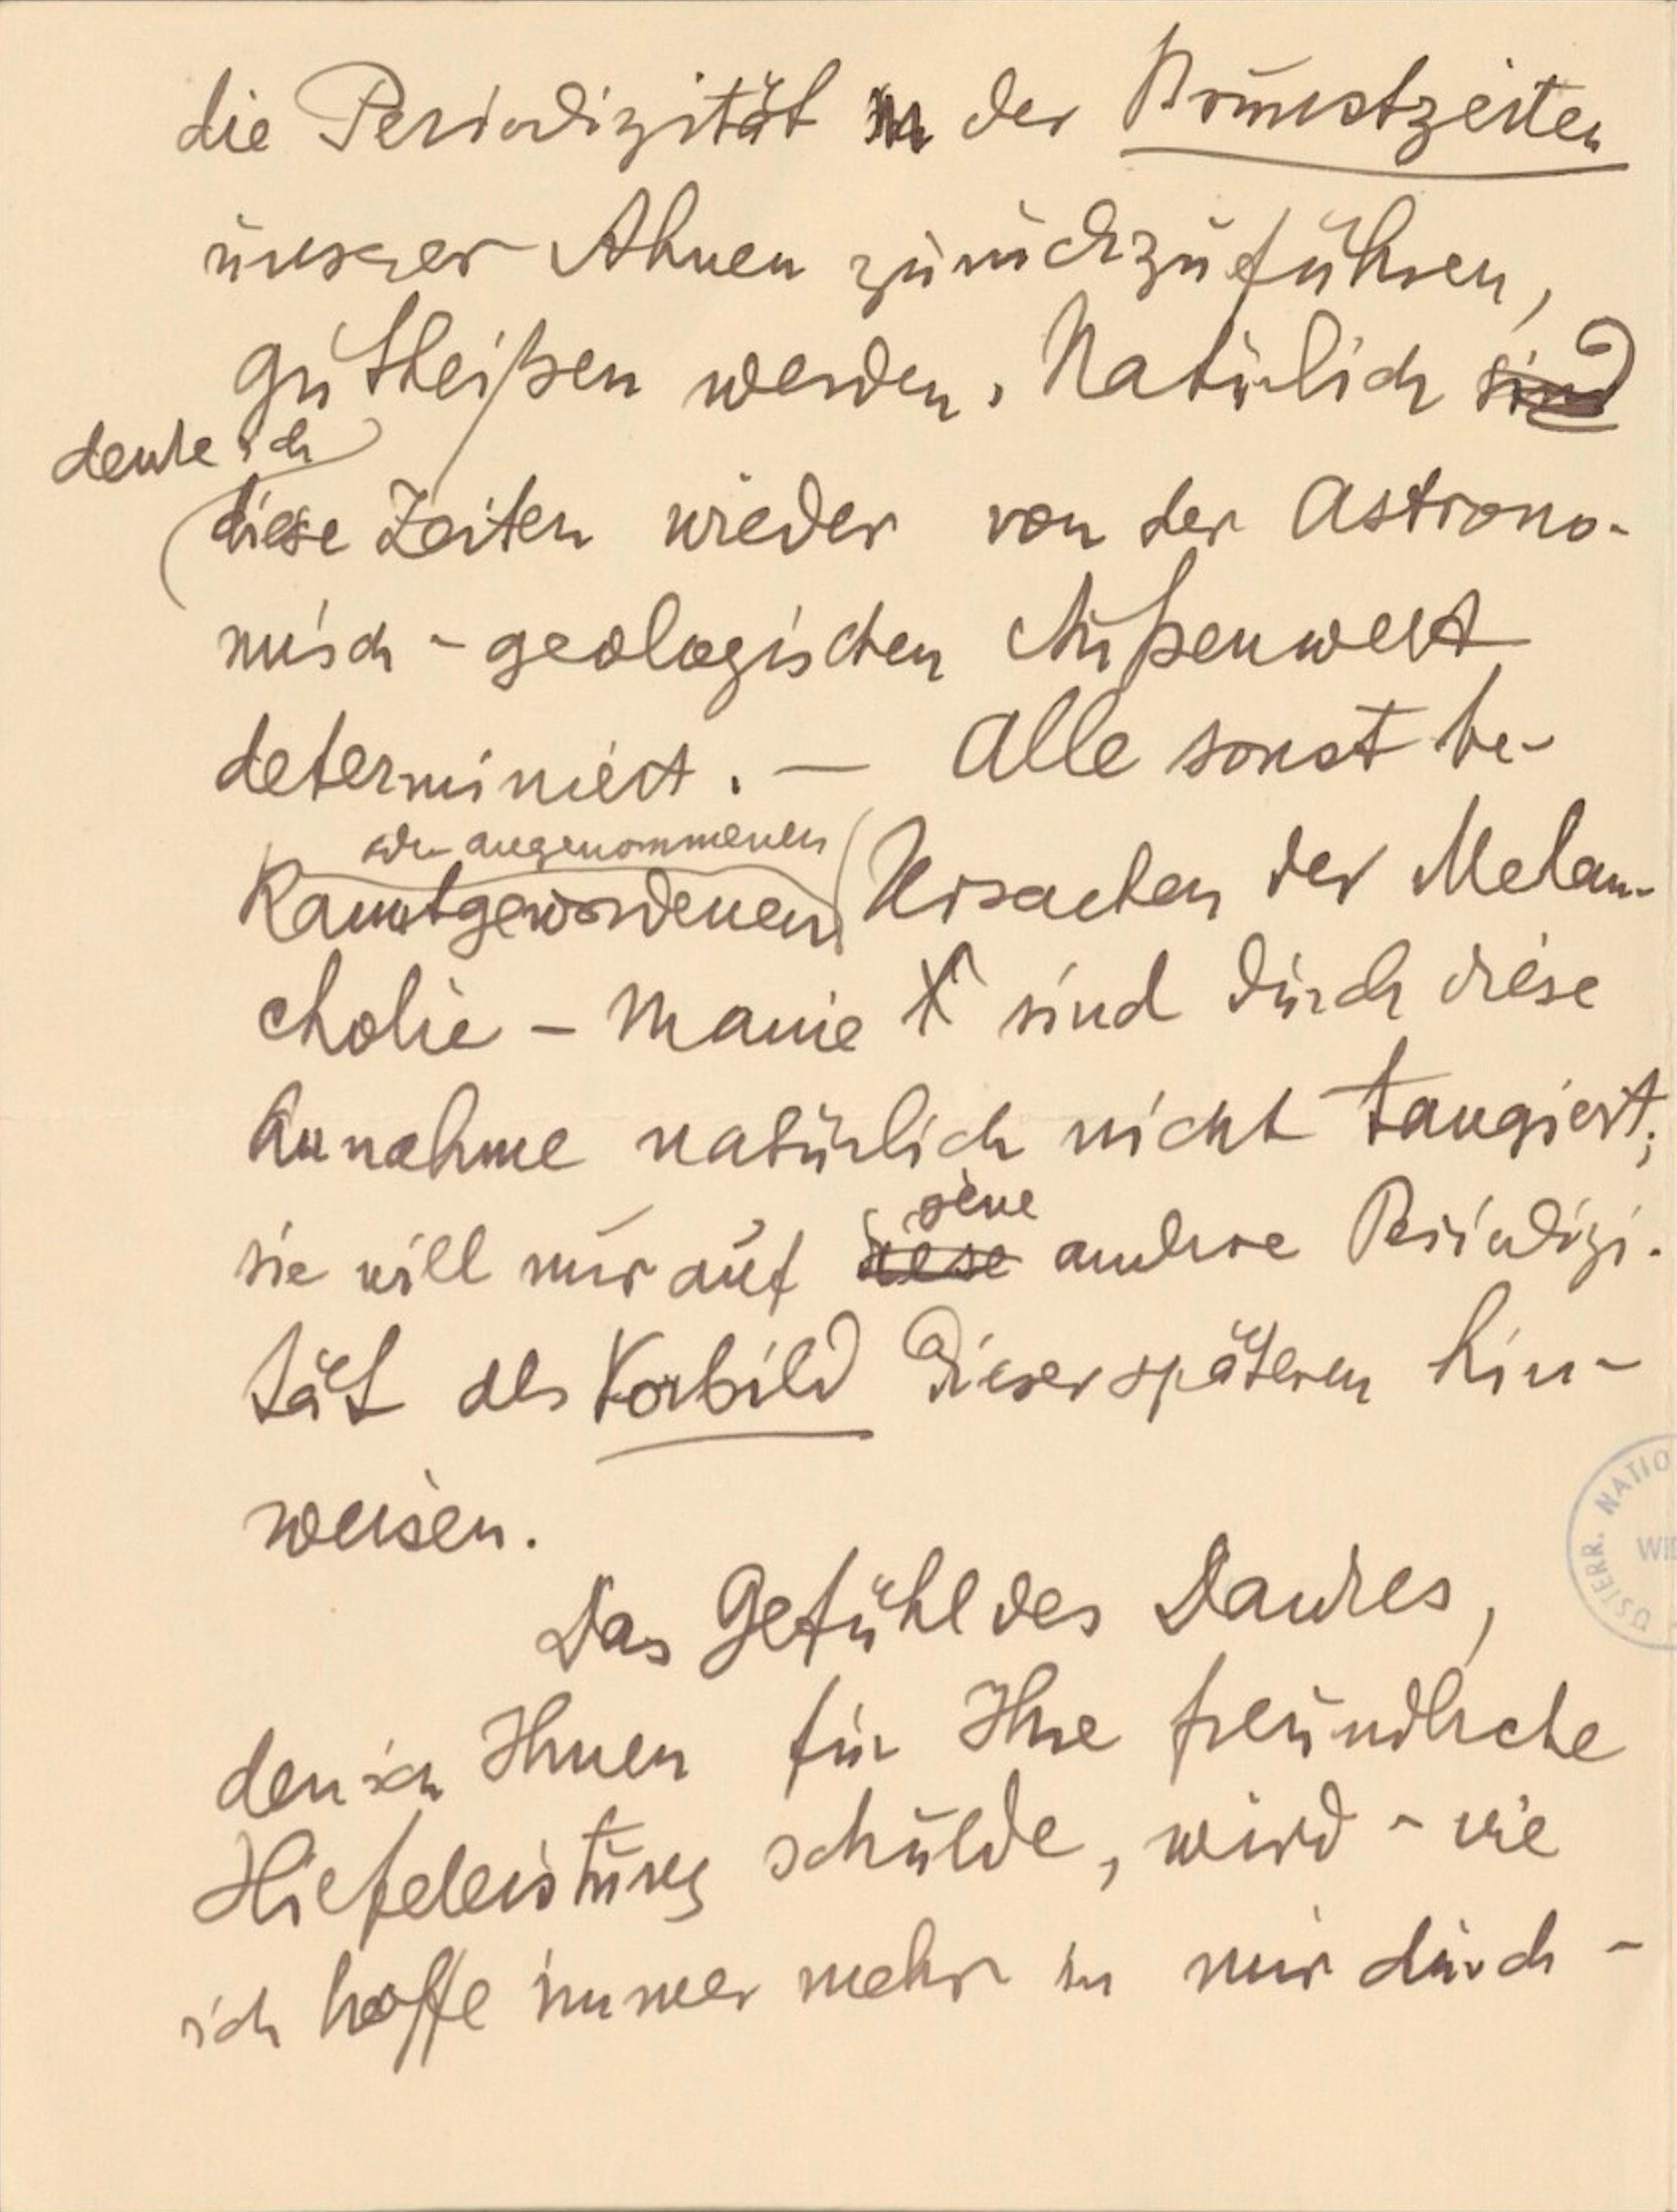 die Periodizität der Brunstzeiten
unserer Ahnen zurückzuführen,
gutheißen werden. Natürlich sind
denke ich
diese Zeiten wieder von der astrono-
misch-geologischen Außenwelt
determiniert. — Alle sonst be-
oder angenommenen
kanntgewordenen Ursachen der Melan-
cholie - Manie sind durch diese
Annahme natürlich nicht tangiert;
sie will nur auf diese andere Periodizi-
jene
tät als Vorbild dieser späteren hin-
weisen.
Das Gefühl des Dankes,
den ich Ihnen für Ihre freundliche
Hilfeleistung schulde, wird - wie
ich hoffe immer mehr in mir durch-
ÖSTERR. NATIO
WI